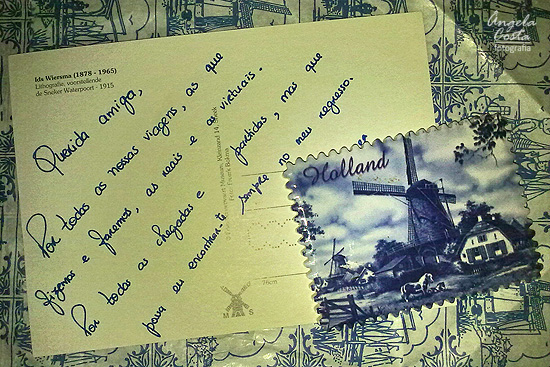 Angela
Costa
fotografia
Ids Wiersma (1878 - 1965)
Lithografie, voorstellende
de Sneker Waterpoort - 1915
Querida amiga,
Por todas as nossas viagens, as que
fizemos e faremos, as reais e as virtuais.
Por todas as chegadas e partidas, mas que
para eu encontrar-te sempre no meu regresso.
Museum, Kleinzand 14, Sneek
M S
Holland